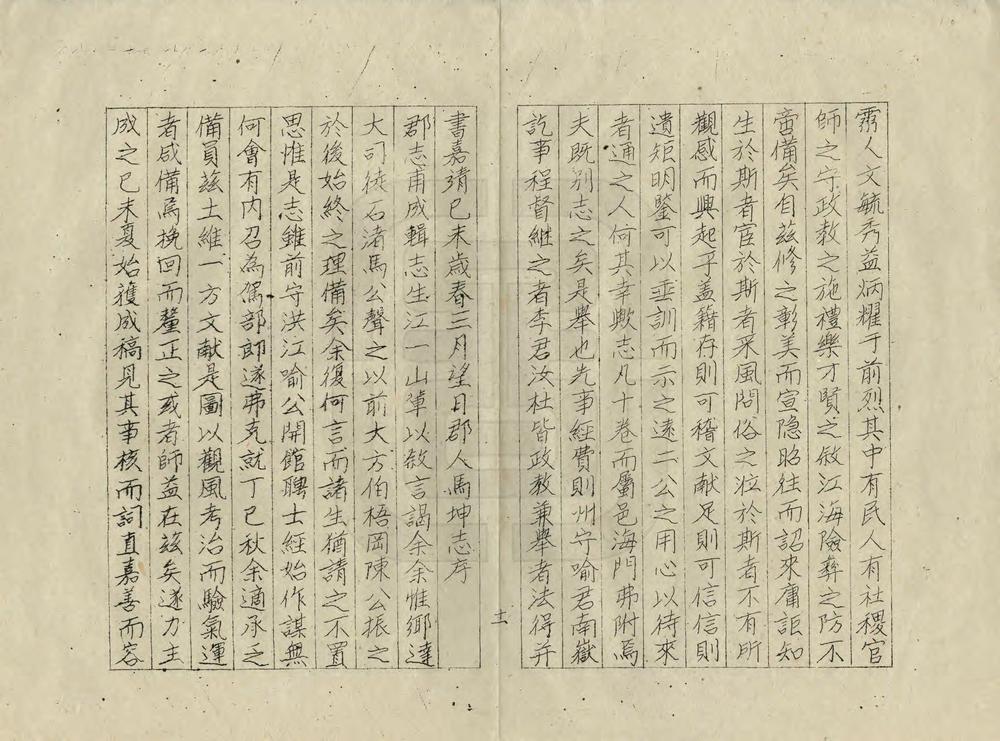 霱人文毓秀益炳耀于前烈其中有民人有社稷官
師之守政教之施禮樂才賢之敘江海險彝之防不
啻備矣自茲修之彰美而宣隐昭往而詔來庸詎知
生於斯者宦於斯者采風問俗之涖於斯者不有所
觀感而興起乎盖籍存則可稽文献足則可信信則
遺矩明鑒可以垂訓而示之遠二公之用心以待來
者通之人何其幸歟志凡十卷而屬邑海門弗附焉
夫既别志之矣是舉也先事經費則州守喻君南嶽
訖事程督継之者李君汝杜皆政教兼舉者法得并
十一
書嘉靖己未歲春三月望日郡人馬坤志序
郡志甫成輯志生江一山軰以敘言謁余余惟鄉達
大司徒石渚馬公聲之以前大方伯梧岡陳公振之
於後始終之理備矣余復何言而諸生猶請之不置
思惟是志雖前守洪江喻公開館聘士經始作謀無
何會有内召為駕部郎遂弗克就丁巳秋余適承乏
備員茲土維一方文献是圖以觀風考治而驗氣運
者咸備焉挽回而釐正之或者師益在茲矣遂力主
成之已未夏始獲成稿見其事核而詞直嘉善而容